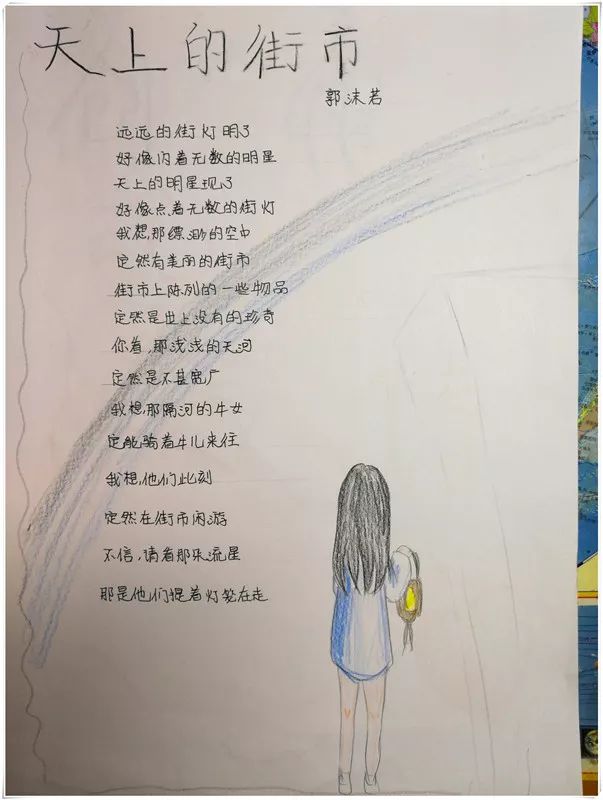 天上的街市
郭沫若
远远的街灯明了
好像闪着无数的明星
天上的明星现了
好像点着无数的街灯
我想,那缥渺的空中
定然有美丽的街市
街市上陈列的一些物品
定然是世上没有的珍奇
你看,那浅浅的天河
定然是不甚宽广
我想那隔河的牛女
定能骑着牛儿来往
我想,他们此刻
定然在街市闲游
不信,请看那朵流星
那是他们提着灯笼在走